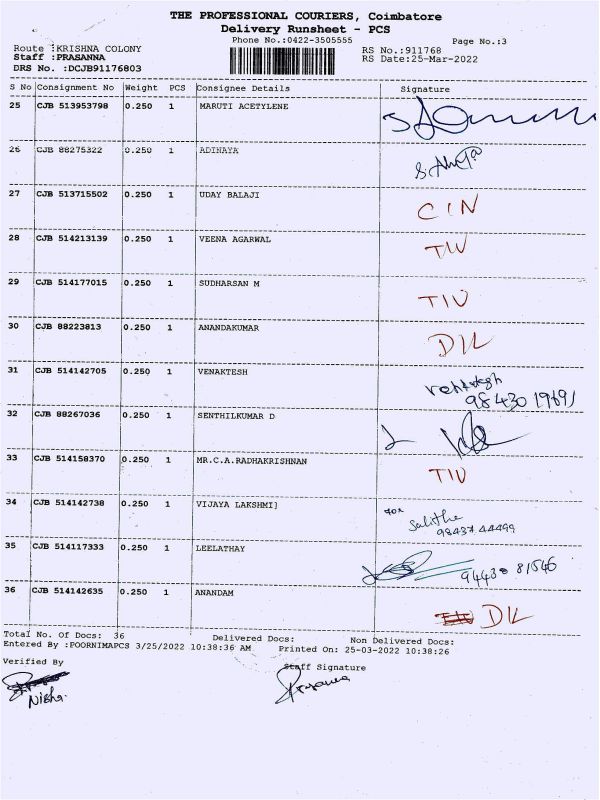 THE PROFESSIONAL COURIERS, Coimbatore
Delivery Runsheet - PCS
Phone No.:0422-3505555
Page No.:3
Route :KRISHNA COLONY
RS No.:911768
Staff :PRASANNA
RS Date:25-Mar-2022
DRS No. :DCJB91176803
S No Consignment No Weight PCS Consignee Details Signature
25 CJB 513953798 0.250 1 MARUTI ACETYLENE
26 CJB 88275322 0.250 1 ADINAYA
27 CJB 513715502 0.250 1 UDAY BALAJI CIN
28 CJB 514213139 0.250 1 VEENA AGARWAL TIV
29 CJB 514177015 0.250 1 SUDHARSAN M TIV
30 CJB 88223813 0.250 1 ANANDAKUMAR DIL
31 CJB 514142705 0.250 1 VENAKTESH Venkatesh
98430 19691
32 CJB 88267036 0.250 1 SENTHILKUMAR D
33 CJB 514158370 0.250 1 MR.C.A.RADHAKRISHNAN TIV
34 CJB 514142738 0.250 1 VIJAYA LAKSHMI] for
Salitha
98437 44499
35 CJB 514117333 0.250 1 LEELATHAY 94438 81546
36 CJB 514142635 0.250 1 ANANDAM TIV DIL
Total No. Of Docs: 36 Delivered Docs: Non Delivered Docs:
Entered By :POORNIMAPCS 3/25/2022 10:38:36 AM Printed On: 25-03-2022 10:38:26
Verified By Staff Signature
Nisha. Prasanna